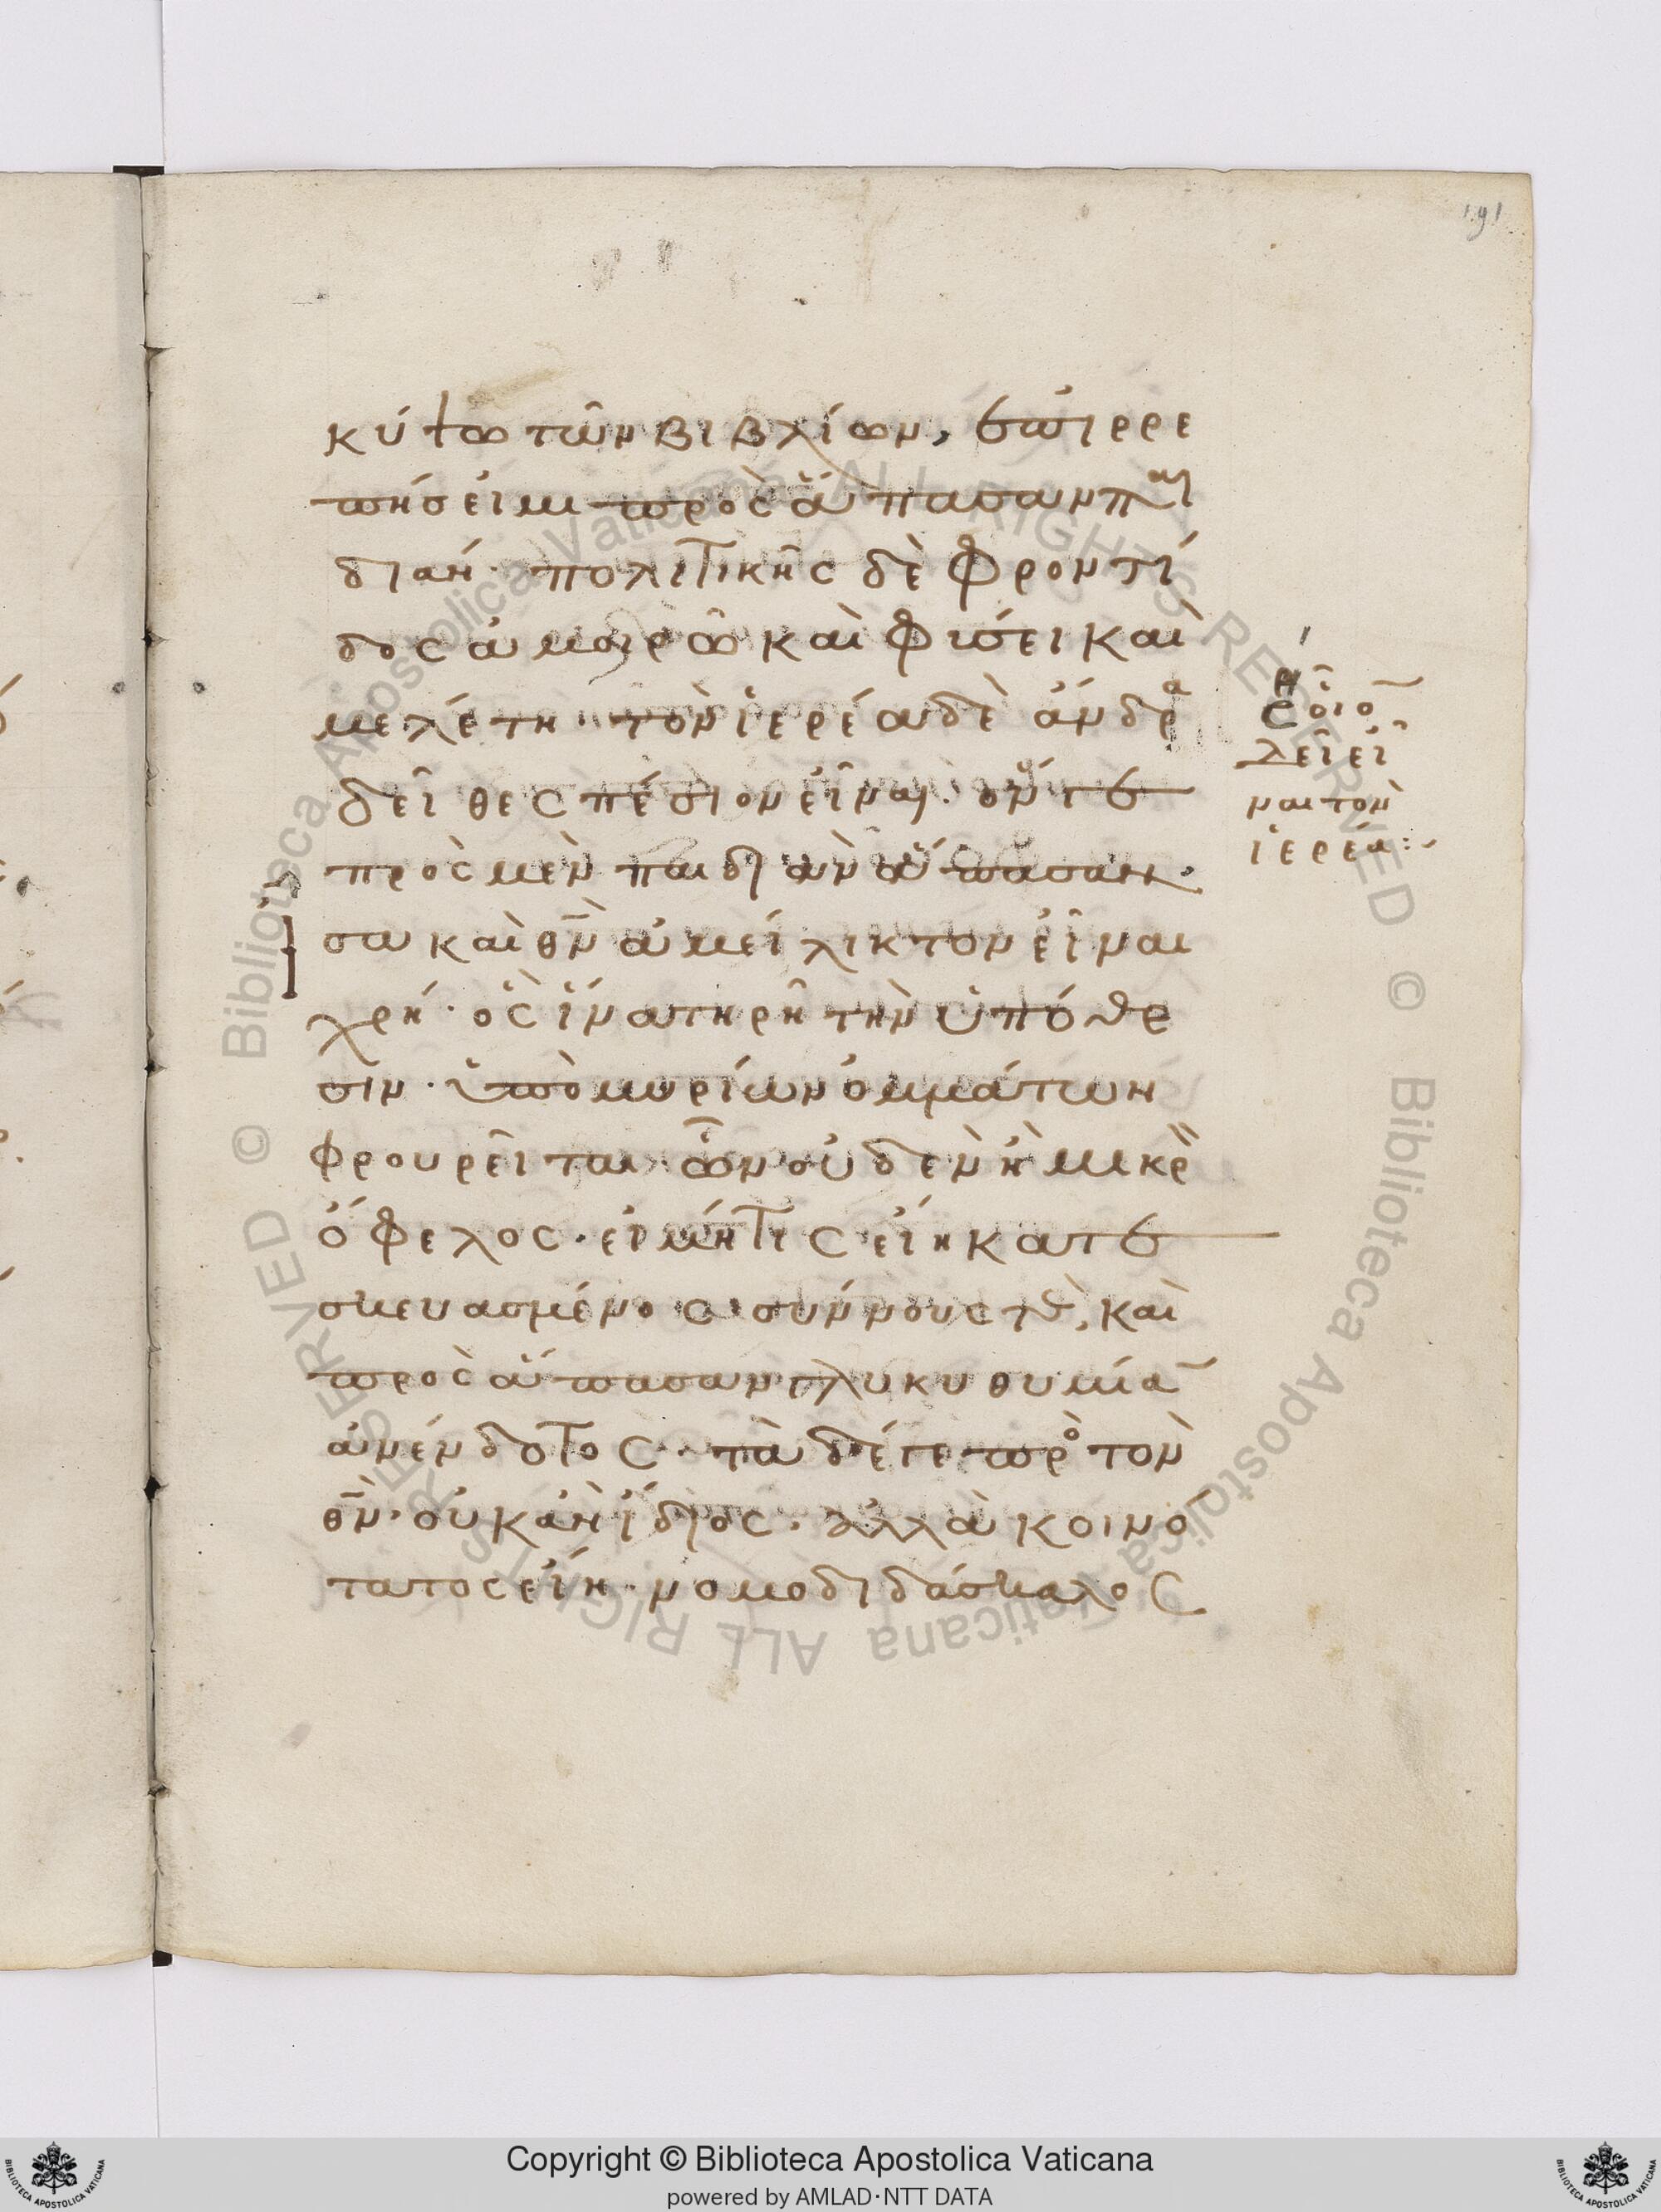 191
κύπτω τῶν βιβλίων, ἐπιρρε
πής εἰμι πρὸς ἅπασαν παι
διάν· πολιτικῆς δὲ φροντί
δος ἀμοιρῶ καὶ φύσει καὶ
μελέτη· τὸν ἱερέα δὲ ἄνδρα
δεῖ θεσπέσιον εἶναι. ὅν γε
πρὸς μὲν παιδιὰν ἅπασαν·
ἴσα καὶ θ̅ν̅ ἀμείλικτον εἶναι
χρή· ὃς ἵνα τηρῆ τὴν ὑπόθε
σιν· ὑπὸ μυρίων ὀμμάτων
φρουρεῖται· ὧν οὐδὲν ἢ μικρὸν
ὄφελος· εἰ μή τις εἴη κατε
σκευασμένος σύννους τὲ, καὶ
πρὸς ἅπασαν γλυκυθυμίαν
ἀνένδοτος· τὰ δέ γε πρὸς τὸν
θ̅ν̅· οὐκ ἂν ἴδιος· ἀλλὰ κοινό
τατος εἴη· νομοδιδάσκαλος
οἷον
δεῖ εἶ
ναι τὸν
ἱερέα:
Copyright © Biblioteca Apostolica Vaticana
powered by AMLAD·NTT DATA